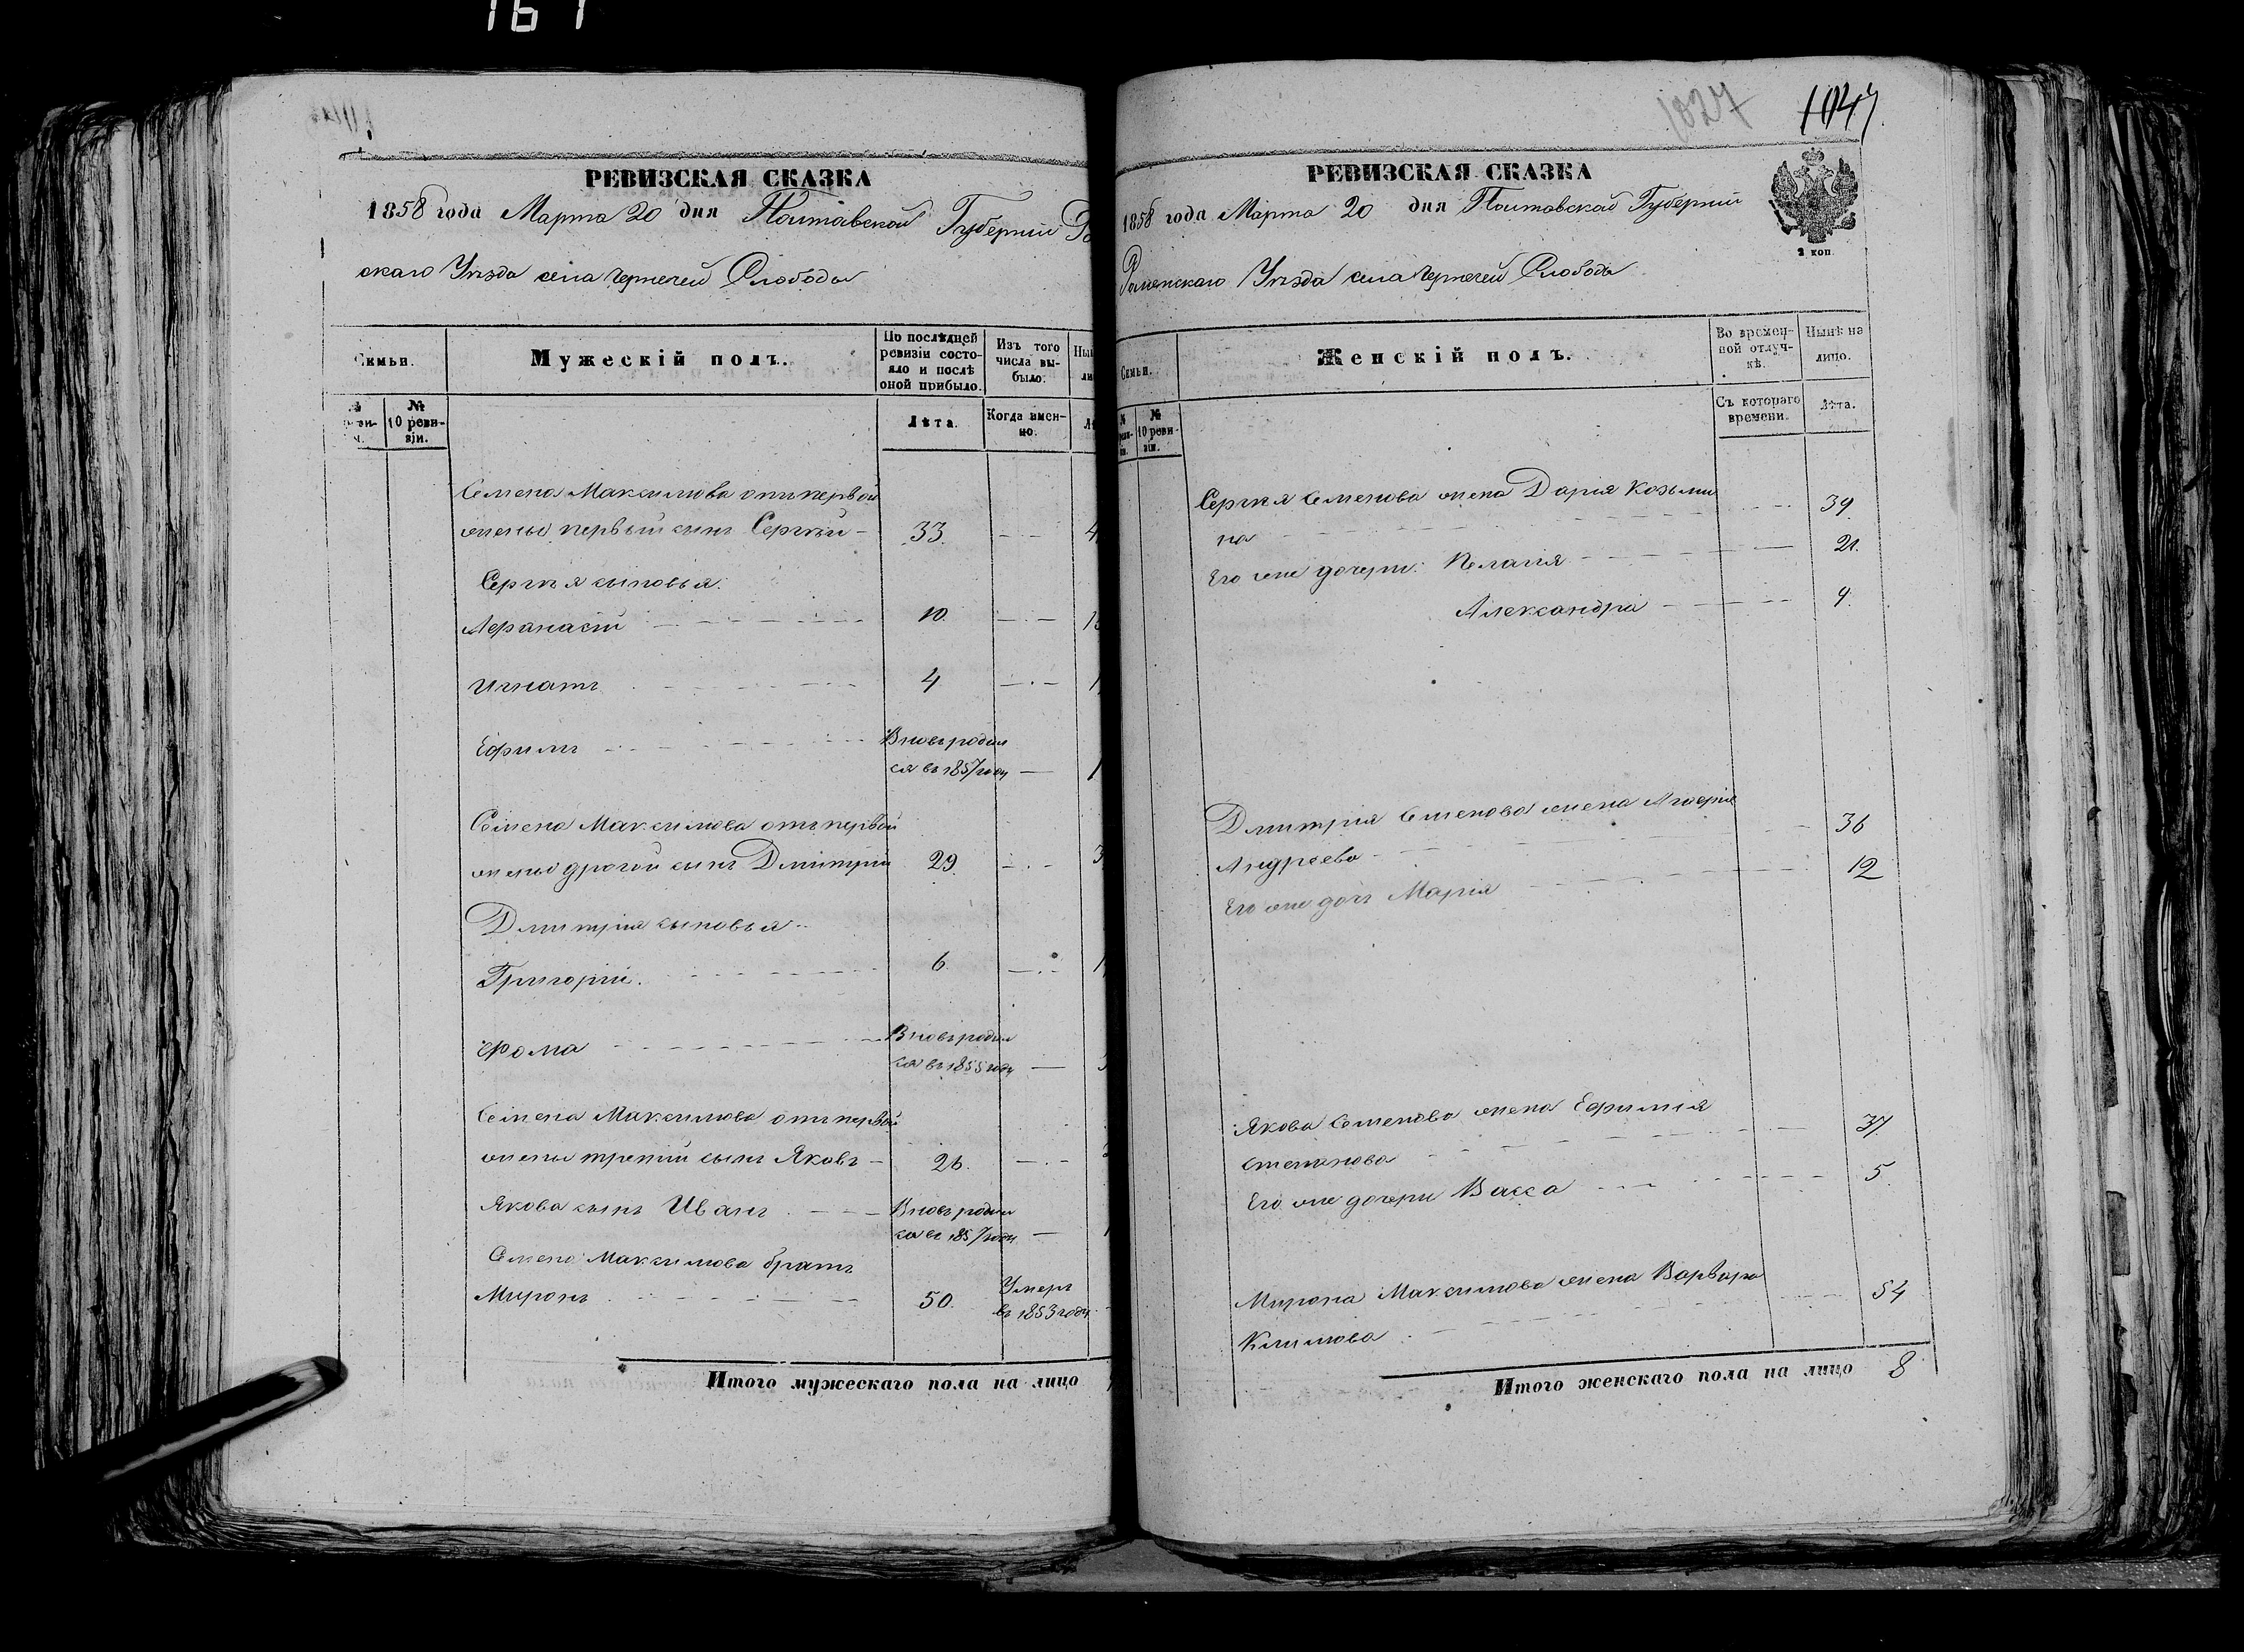 167
РЕВИЗСКАЯ СКАЗКА
1858 года Марта 20 дня Полтавской Губернии Ро
скаго Уѣзда села Чернечей Слободы
Семьи.
Мужескій полъ.
По послѣдней ревизіи состояло и послѣ оной прибыло.
Изъ того числа выбыло.
№ 10 ревизіи.
Лѣта.
Когда именно.
Семена Максимова отъ первой
жены первый сынъ Сергѣй 33.
Сергѣя сыновья:
Афанасій 10.
Игнатъ 4
Ефимъ Вновь родил
ся въ 1857 году
Семена Максимова отъ первой
жены другой сынъ Дмитрій 29.
Дмитрія сыновья
Григорій. 6
Фома Вновь родил
ся въ 1855 году
Семена Максимова отъ первой
жены третій сынъ Яковъ 26.
Якова сынъ Иванъ Вновь родил
ся въ 1857 году
Семена Максимова братъ
Миронъ 50. Умеръ
въ 1853 году.
Итого мужескаго пола на лицо
1027 1047
РЕВИЗСКАЯ СКАЗКА
1858 года Марта 20 дня Полтавской Губерніи
2 коп.
Роменскаго Уѣзда села Чернечей Слободы
Семьи.
Женскій полъ.
Во временной отлучкѣ.
Нынѣ на лицо.
№ 10 ревизіи.
Съ котораго времени.
Лѣта.
Сергѣя Семенова жена Дарія Козьми
на 39.
Его же дочери: Пелагія 21.
Александра 9.
Дмитрія Семенова жена
Андреева 36
Его же дочь Марія 12
Якова Семенова жена Ефимія
Степанова 37
Его же дочери Васса 5.
Мирона Максимова жена Варвара
Климова 54
Итого женскаго пола на лицо 8